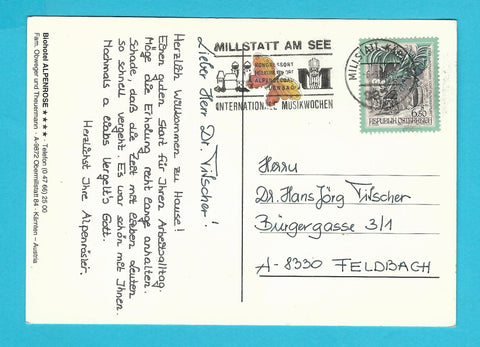 Biohotel ALPENROSE ★★★★ · Telefon (0 47 66) 25 00
Fam. Obweger und Theuermann · A-9872 Obermillstatt 84 · Kärnten – Austria
Lieber Herr Dr. Tilscher!
Herzlich Willkommen zu Hause!
Einen guten Start für Ihren Arbeitsalltag.
Möge die Erholung recht lange anhalten.
Schade, daß die Zeit mit lieben Leuten
so schnell vergeht. Es war schön mit Ihnen.
Nochmals a liabs Vergelt's Gott.
Herzlichst Ihre Alpenrösler.
MILLSTATT AM SEE
KONGRESSORT
INTERNATIONALE MUSIKWOCHEN
MILLSTATT
6.50
REPUBLIK ÖSTERREICH
Herrn
Dr. Hans Jörg Tilscher
Bürgergasse 3/1
A-8330 FELDBACH